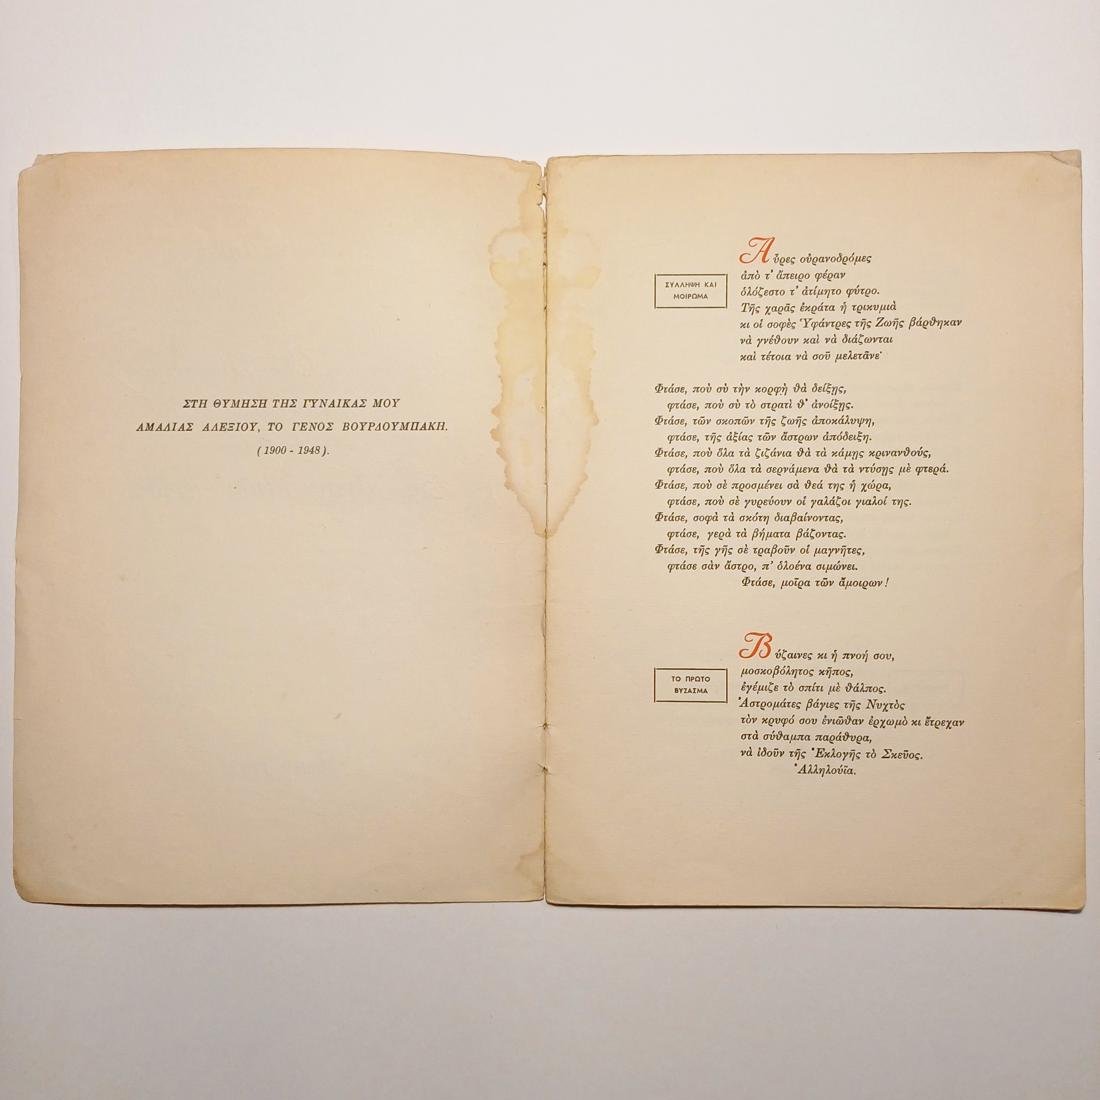 ΣΤΗ ΘΥΜΗΣΗ ΤΗΣ ΓΥΝΑΙΚΑΣ ΜΟΥ
ΑΜΑΛΙΑΣ ΑΛΕΞΙΟΥ, ΤΟ ΓΕΝΟΣ ΒΟΥΡΔΟΥΜΠΑΚΗ.
(1900 - 1948).
ΣΥΛΛΗΨΗ ΚΑΙ
ΜΟΙΡΩΜΑ
Αὖρες οὐρανοδρόμες
ἀπὸ τ' ἄπειρο φέραν
ὁλόζεστο τ' ἀτίμητο φύτρο.
Τῆς χαρᾶς ἐκράτα ἡ τρικυμιὰ
κι οἱ σοφὲς Ὑφάντρες τῆς Ζωῆς βάρθηκαν
νὰ γνέθουν καὶ νὰ διάζωνται
καὶ τέτοια νὰ σοῦ μελετᾶνε·
Φτάσε, ποὺ σὺ τὴν κορφὴ θὰ δείξῃς,
φτάσε, ποὺ σὺ τὸ στρατὶ θ' ἀνοίξῃς.
Φτάσε, τῶν σκοπῶν τῆς ζωῆς ἀποκάλυψη,
φτάσε, τῆς ἀξίας τῶν ἄστρων ἀπόδειξη.
Φτάσε, ποὺ ὅλα τὰ ζιζάνια θὰ τὰ κάμῃς κρινανθούς,
φτάσε, ποὺ ὅλα τὰ σερνάμενα θὰ τὰ ντύσῃς μὲ φτερά.
Φτάσε, ποὺ σὲ προσμένει σὰ θεά της ἡ χώρα,
φτάσε, ποὺ σὲ γυρεύουν οἱ γαλάζοι γιαλοί της.
Φτάσε, σοφὰ τὰ σκότη διαβαίνοντας,
φτάσε, γερὰ τὰ βήματα βάζοντας.
Φτάσε, τῆς γῆς σὲ τραβοῦν οἱ μαγνῆτες,
φτάσε σὰν ἄστρο, π' ὁλοένα σιμώνει.
Φτάσε, μοῖρα τῶν ἄμοιρων!
ΤΟ ΠΡΩΤΟ
ΒΥΖΑΣΜΑ
Βύζαινες κι ἡ πνοή σου,
μοσκοβόλητος κῆπος,
ἐγέμιζε τὸ σπίτι μὲ θάλπος.
Ἀστρομάτες βάγιες τῆς Νυχτὸς
τὸν κρυφό σου ἐνιῶθαν ἐρχωμὸ κι ἔτρεχαν
στὰ σύθαμπα παράθυρα,
νὰ ἰδοῦν τῆς Ἐκλογῆς τὸ Σκεῦος.
Ἀλληλούϊα.